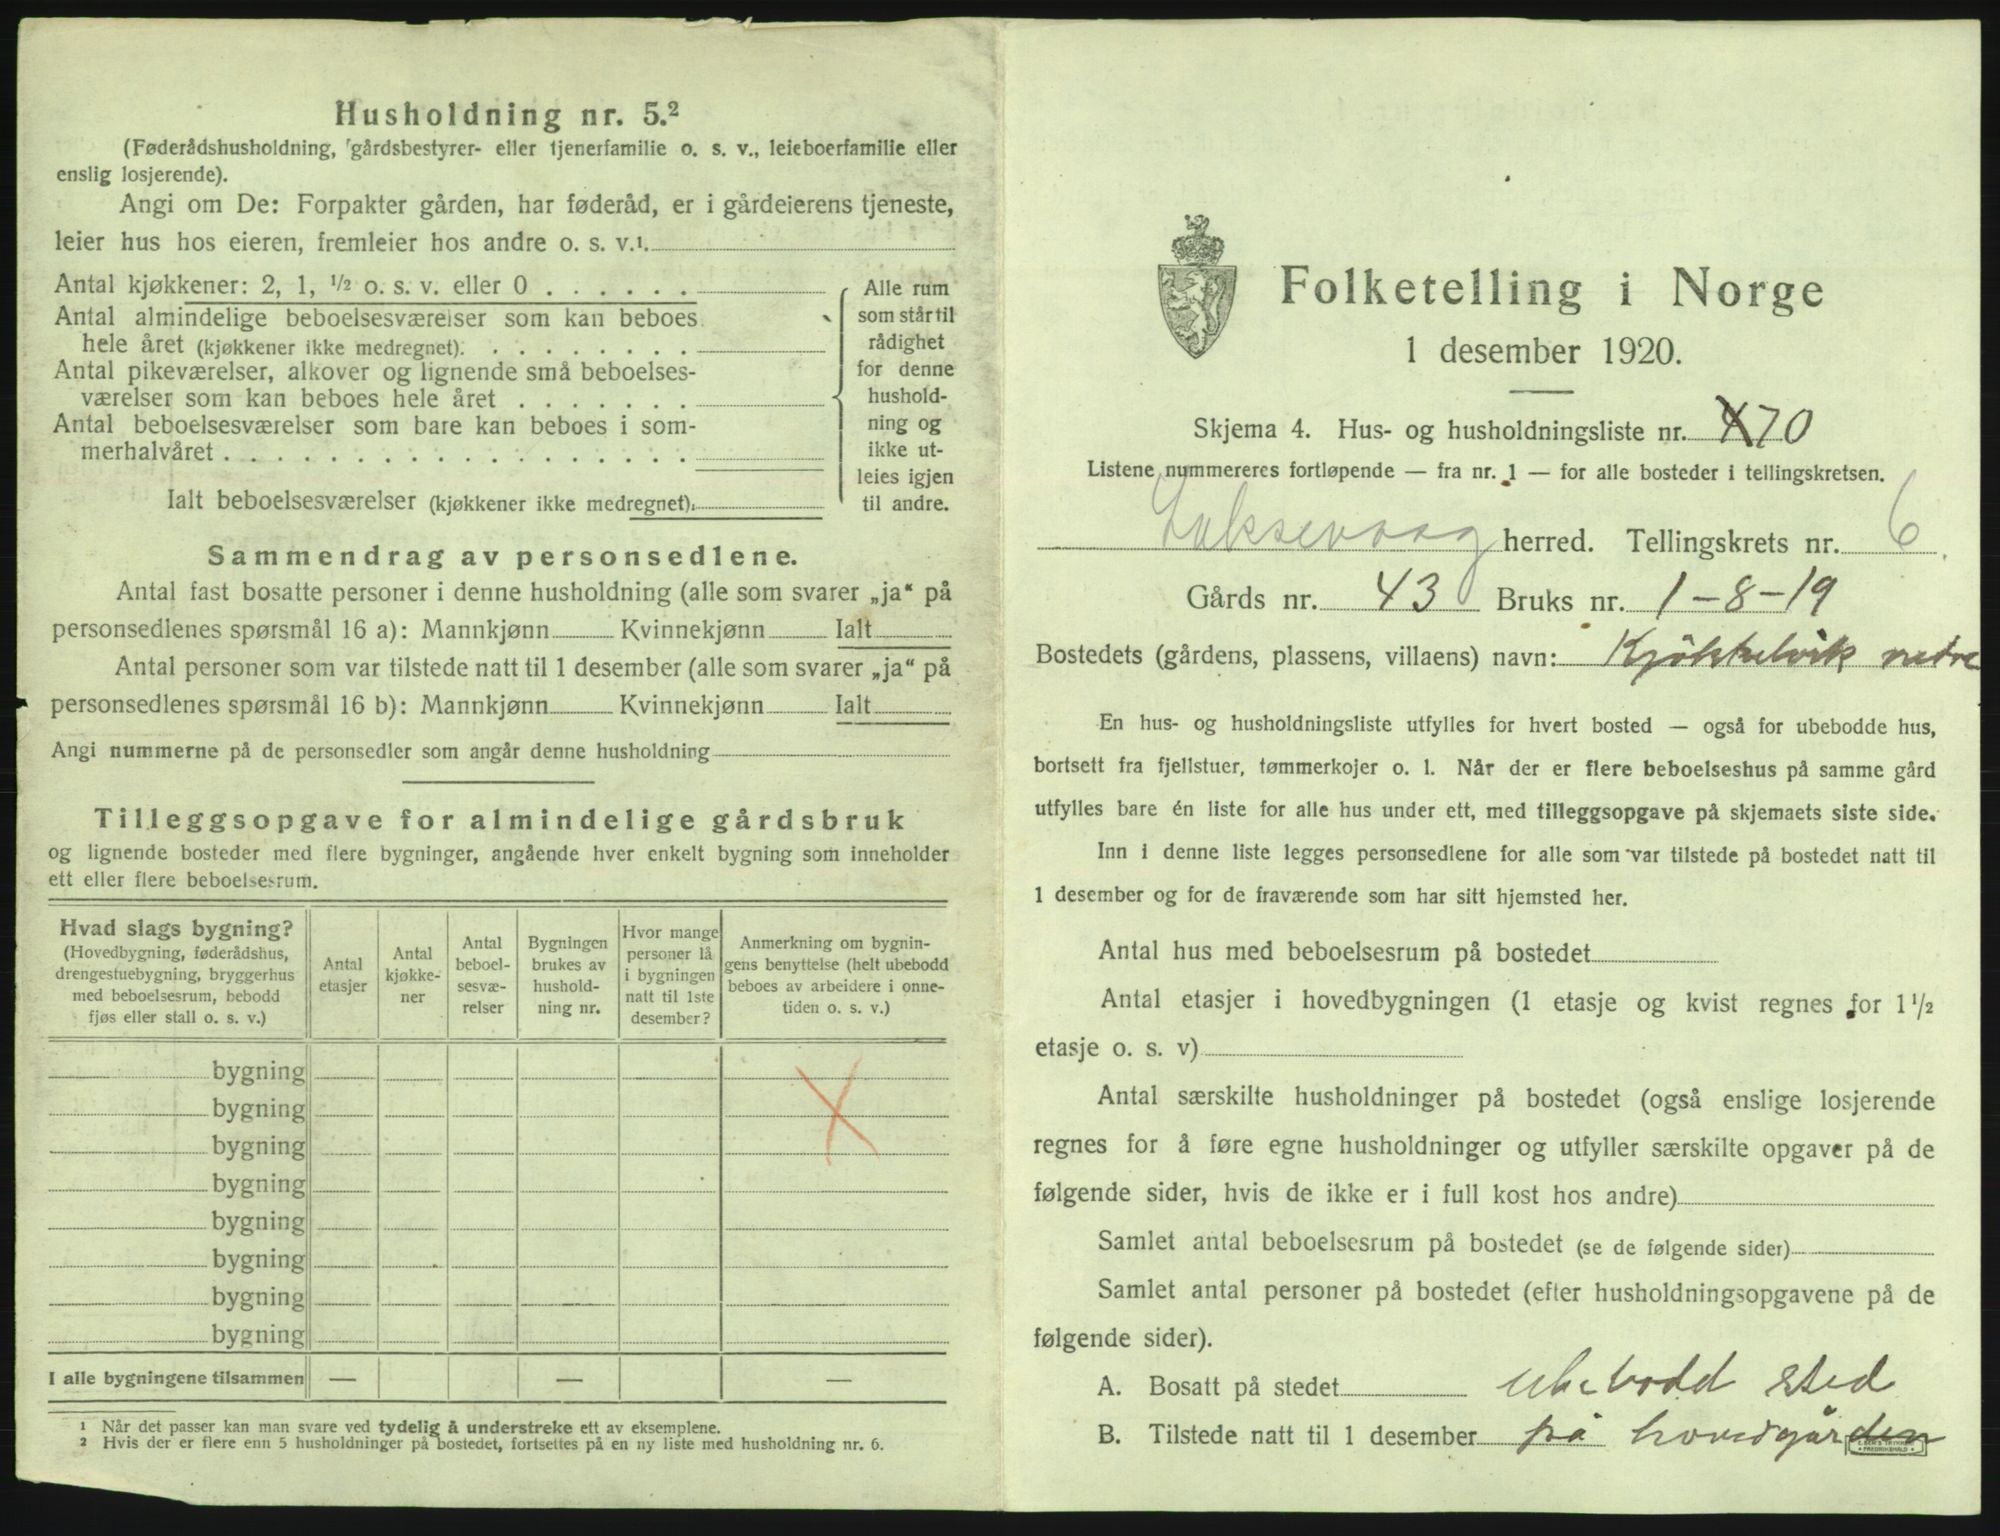 Husholdning nr. 5.²
(Føderådshusholdning, gårdsbestyrer- eller tjenerfamilie o. s. v., leieboerfamilie eller
enslig losjerende).
Angi om De: Forpakter gården, har føderåd, er i gårdeierens tjeneste,
leier hus hos eieren, fremleier hos andre o. s. v.¹
Antal kjøkkener: 2, 1, ½ o. s. v. eller 0
Antal almindelige beboelsesværelser som kan beboes
hele året (kjøkkener ikke medregnet).
Antal pikeværelser, alkover og lignende små beboelses-
værelser som kan beboes hele året
Antal beboelsesværelser som bare kan beboes i som-
merhalvåret
Ialt beboelsesværelser (kjøkkener ikke medregnet).
Alle rum
som står til
rådighet
for denne
hushold-
ning og
ikke ut-
leies igjen
til andre.
Sammendrag av personsedlene.
Antal fast bosatte personer i denne husholdning (alle som svarer „ja“ på
personsedlenes spørsmål 16 a): Mannkjønn Kvinnekjønn Ialt
Antal personer som var tilstede natt til 1 desember (alle som svarer „ja“ på
personsedlenes spørsmål 16 b): Mannkjønn Kvinnekjønn Ialt
Angi nummerne på de personsedler som angår denne husholdning
Tilleggsopgave for almindelige gårdsbruk
og lignende bosteder med flere bygninger, angående hver enkelt bygning som inneholder
ett eller flere beboelsesrum.
Hvad slags bygning?
(Hovedbygning, føderådshus,
drengestuebygning, bryggerhus
med beboelsesrum, bebodd
fjøs eller stall o. s. v.)
Antal
etasjer
Antal
kjøkke-
ner
Antal
beboel-
sesvæ-
relser
Bygningen
brukes av
hushold-
ning nr.
Hvor mange
personer lå
i bygningen
natt til 1ste
desember?
Anmerkning om bygnin-
gens benyttelse (helt ubebodd
beboes av arbeidere i onne-
tiden o. s. v.)
bygning
bygning
bygning
bygning
bygning
bygning
bygning
bygning
I alle bygningene tilsammen — — —
¹ Når det passer kan man svare ved tydelig å understreke ett av eksemplene.
² Hvis der er flere enn 5 husholdninger på bostedet, fortsettes på en ny liste med husholdning nr. 6.
Folketelling i Norge
1 desember 1920.
Skjema 4. Hus- og husholdningsliste nr. 70
Listene nummereres fortløpende — fra nr. 1 — for alle bosteder i tellingskretsen.
Laksevaag herred. Tellingskrets nr. 6
Gårds nr. 43 Bruks nr. 1-8-19
Bostedets (gårdens, plassens, villaens) navn: Kjøkkelvik nedre
En hus- og husholdningsliste utfylles for hvert bosted — også for ubebodde hus,
bortsett fra fjellstuer, tømmerkojer o. l. Når der er flere beboelseshus på samme gård
utfylles bare én liste for alle hus under ett, med tilleggsopgave på skjemaets siste side.
Inn i denne liste legges personsedlene for alle som var tilstede på bostedet natt til
1 desember og for de fraværende som har sitt hjemsted her.
Antal hus med beboelsesrum på bostedet
Antal etasjer i hovedbygningen (1 etasje og kvist regnes for 1 ½
etasje o. s. v)
Antal særskilte husholdninger på bostedet (også enslige losjerende
regnes for å føre egne husholdninger og utfyller særskilte opgaver på de
følgende sider, hvis de ikke er i full kost hos andre)
Samlet antal beboelsesrum på bostedet (se de følgende sider)
Samlet antal personer på bostedet (efter husholdningsopgavene på de
følgende sider).
A. Bosatt på stedet ubebodd sted
B. Tilstede natt til 1 desember på hovedgården